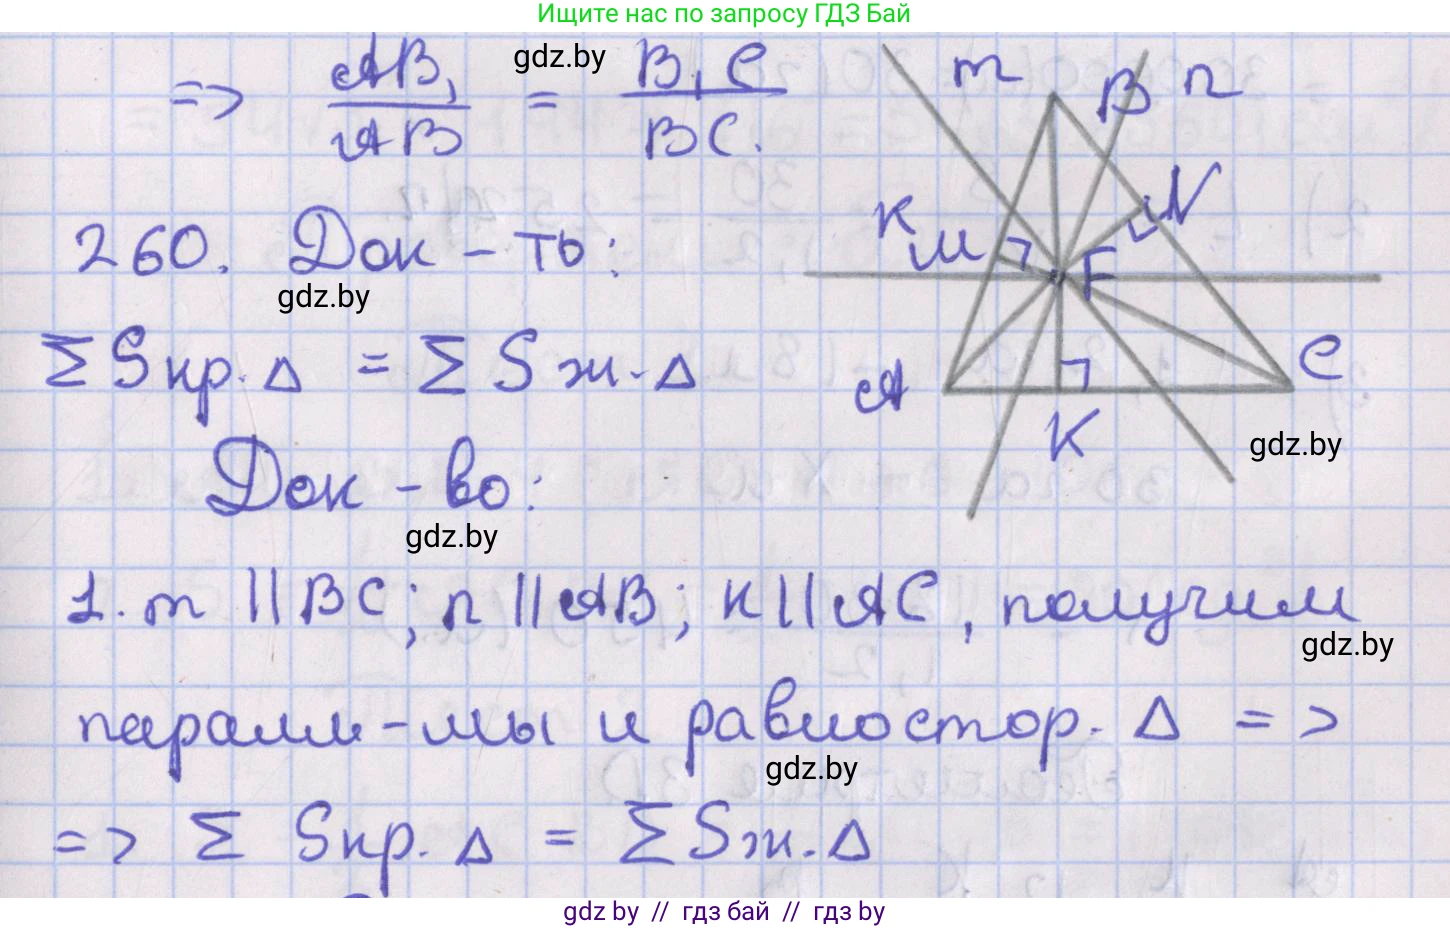 Ищите нас по запросу ГДЗ Бай
=> AB₁/AB = B₁C/BC.
gdz.by
m B n
K M N
F
A C
K
260. Док-ть:
gdz.by
ΣSкр.Δ = ΣSж.Δ
gdz.by
Док-во:
gdz.by
1. m || BC; n || AB; к || AC, получим
gdz.by
паралл-мы и равностор. Δ =>
gdz.by
=> Σ Sкр.Δ = ΣSж.Δ
gdz.by // гдз бай // гдз by